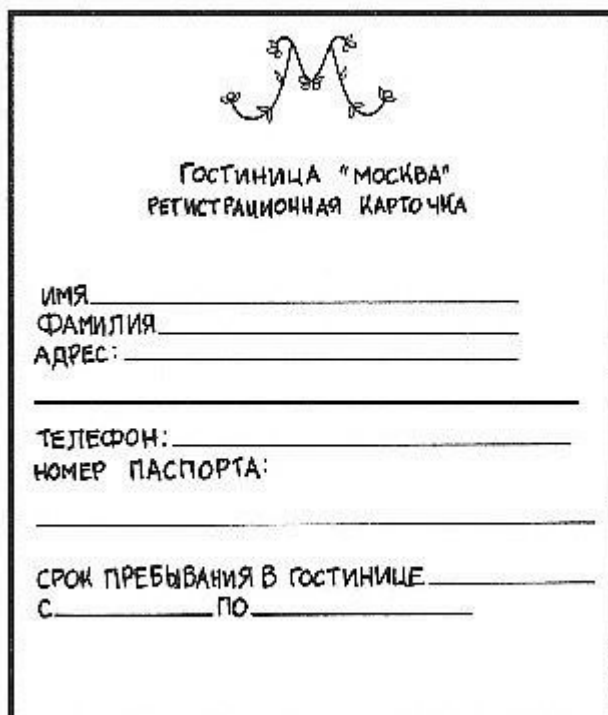 ГОСТИНИЦА "МОСКВА"
РЕГИСТРАЦИОННАЯ КАРТОЧКА
ИМЯ
ФАМИЛИЯ
АДРЕС:
ТЕЛЕФОН:
НОМЕР ПАСПОРТА:
СРОК ПРЕБЫВАНИЯ В ГОСТИНИЦЕ
С ПО